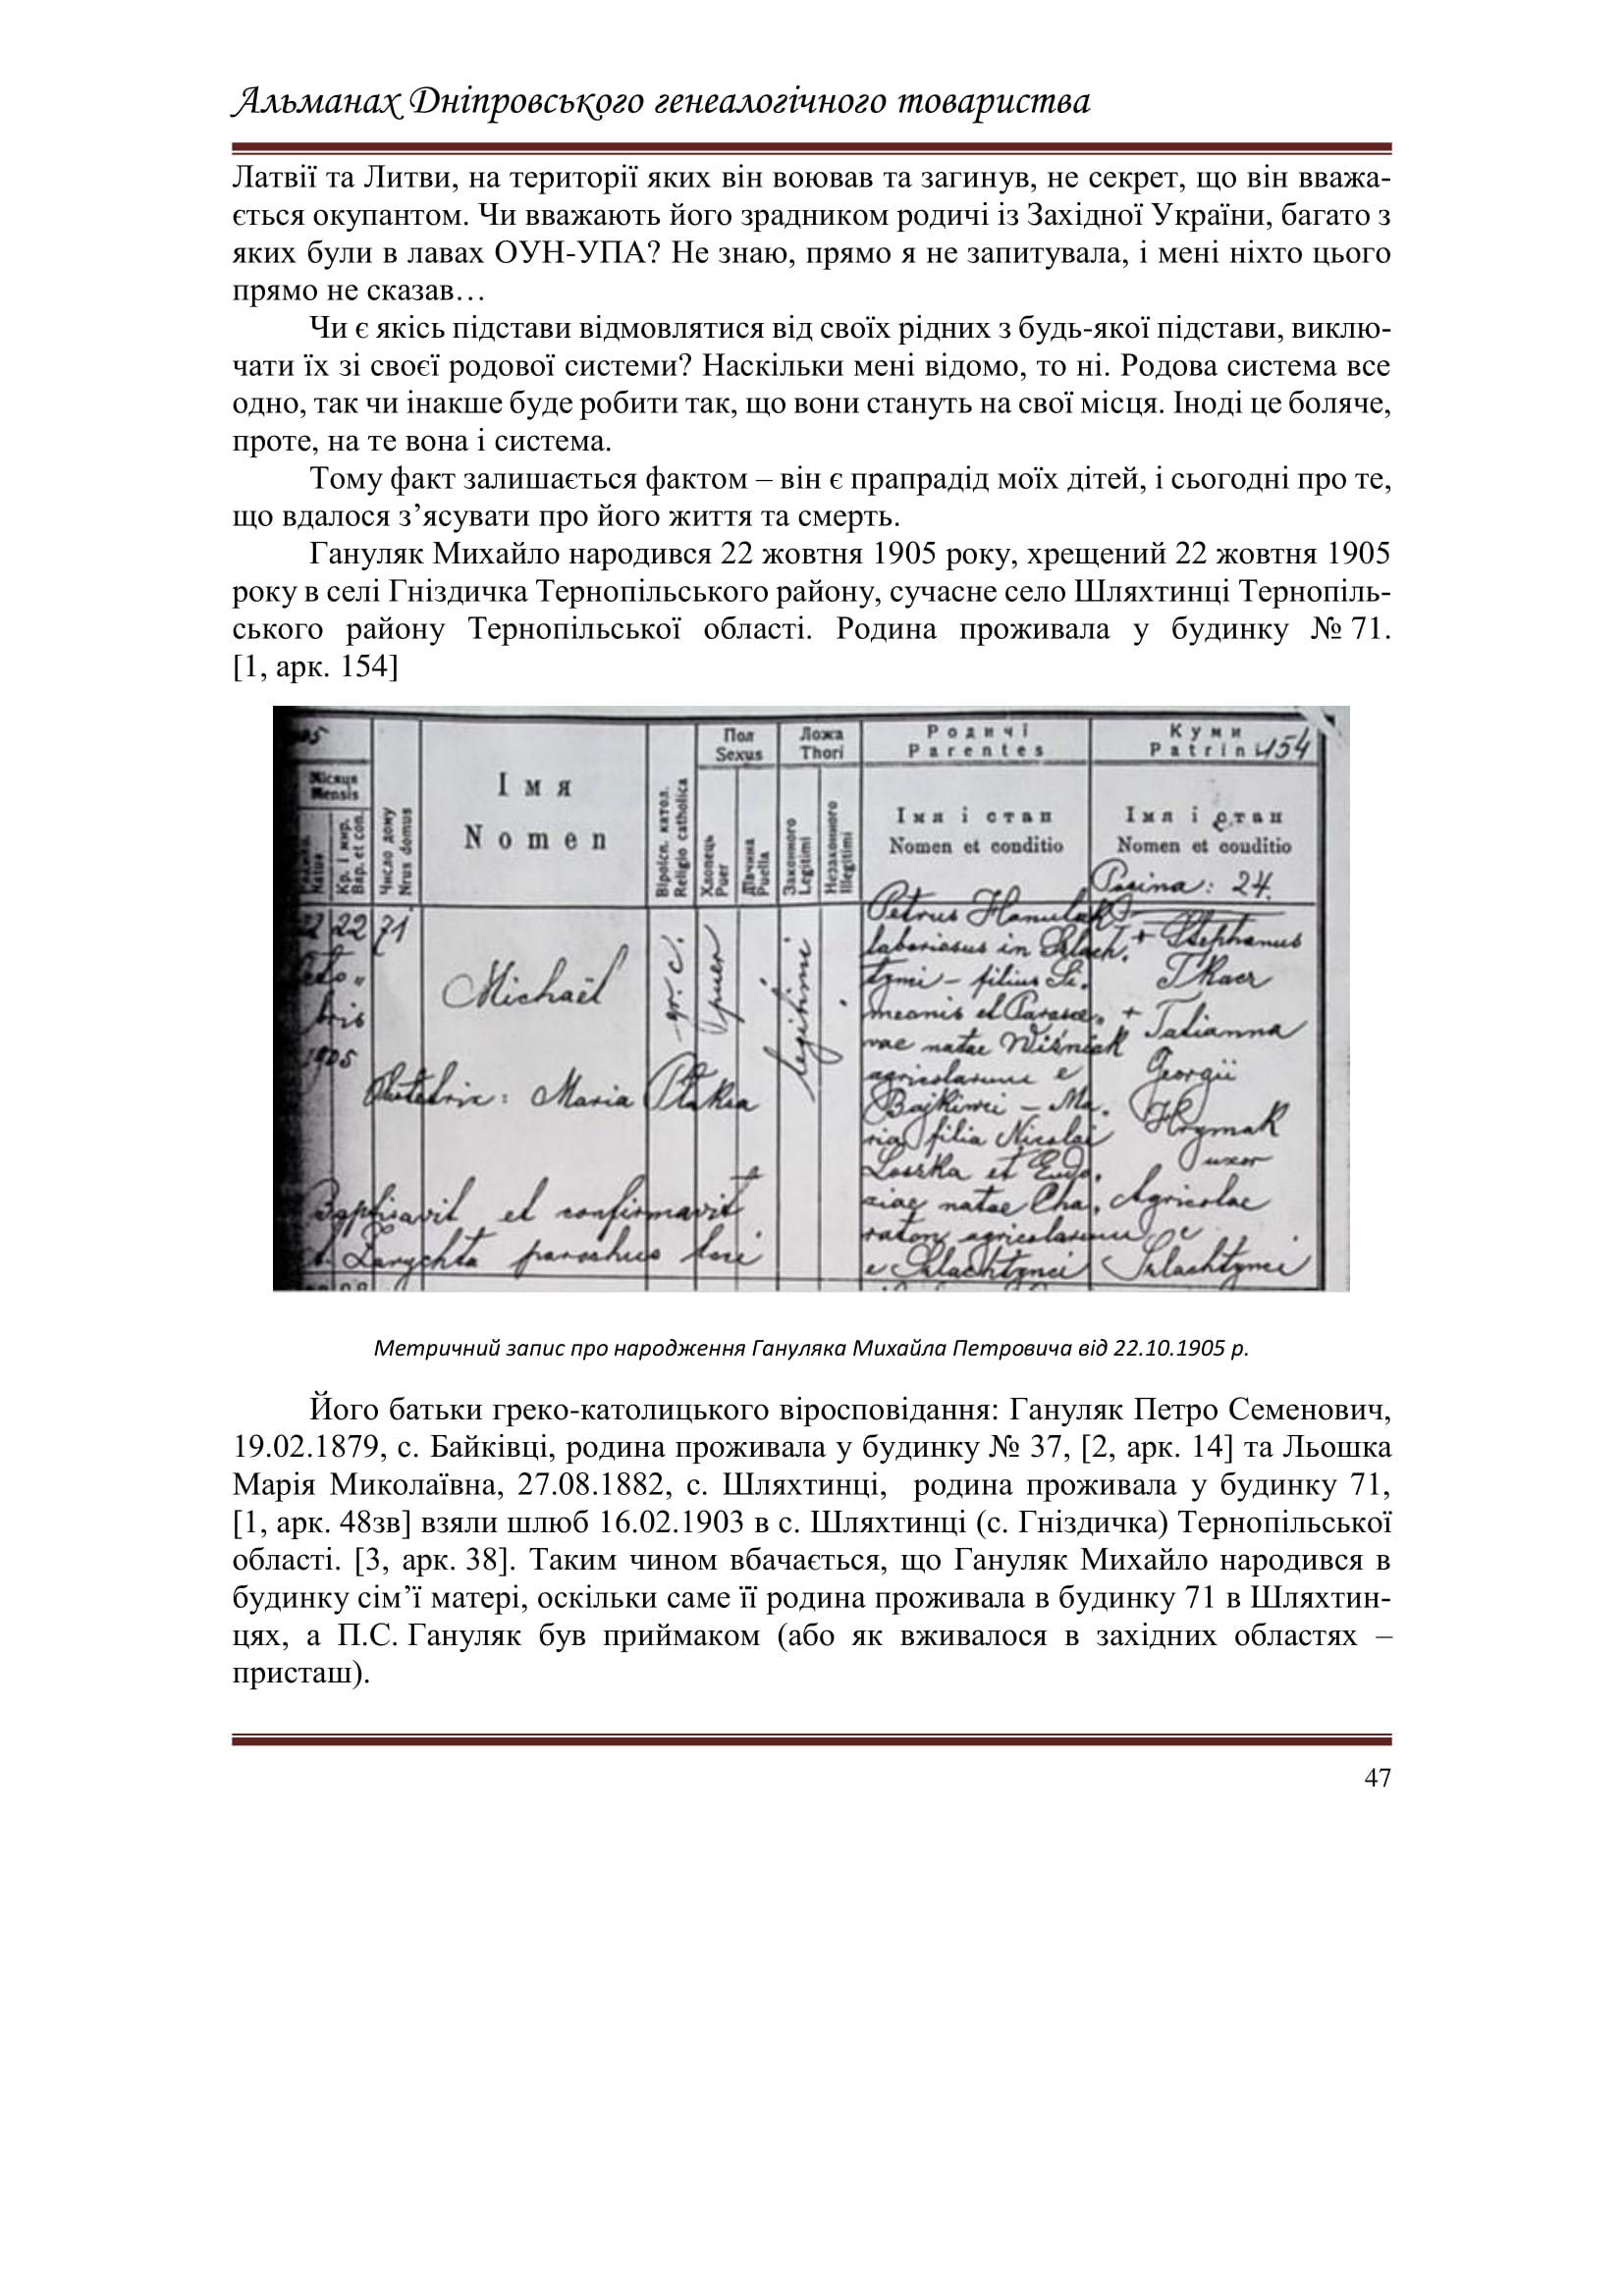 Альманах Дніпровського генеалогічного товариства
Латвії та Литви, на території яких він воював та загинув, не секрет, що він вважа-
ється окупантом. Чи вважають його зрадником родичі із Західної України, багато з
яких були в лавах ОУН-УПА? Не знаю, прямо я не запитувала, і мені ніхто цього
прямо не сказав…
Чи є якісь підстави відмовлятися від своїх рідних з будь-якої підстави, виклю-
чати їх зі своєї родової системи? Наскільки мені відомо, то ні. Родова система все
одно, так чи інакше буде робити так, що вони стануть на свої місця. Іноді це боляче,
проте, на те вона і система.
Тому факт залишається фактом – він є прапрадід моїх дітей, і сьогодні про те,
що вдалося з’ясувати про його життя та смерть.
Гануляк Михайло народився 22 жовтня 1905 року, хрещений 22 жовтня 1905
року в селі Гніздичка Тернопільського району, сучасне село Шляхтинці Тернопіль-
ського району Тернопільської області. Родина проживала у будинку № 71.
[1, арк. 154]
Місяця
Mensis
Кр. і мир.
Bap. et con.
Число дому
Nrus domus
Імя
Nomen
Віросп. катол.
Religio catholica
Пол
Sexus
Хлопець
Puer
Дівчина
Puella
Ложа
Thori
Законного
Legitimi
Незаконного
Illegitimi
Родичі
Parentes
Імя і стан
Nomen et conditio
Куми
Patrini 154
Імя і стан
Nomen et conditio
Pagina: 24.
22 71
Michaël
gr. c.
puer
legitimi
1905
Obstetrix: Maria Ptaksa
Baptisavit et confirmavit
Zarychta parochus loci
Petrus Hanulak
laboriosus in Szlach.
tynci – filius Si.
meonis et Parasce.
vae natae Wiśniak
agricolarum e
Bajkiwci – Ma.
ria filia Nicolai
Loszka et Eudo.
xiae natae Cha.
raton agricolarum
e Szlachtynci
+ Stephanus
Tkacz
+ Tatianna
Georgii
Hrymak
uxor
Agricolae
e
Szlachtynci
Метричний запис про народження Гануляка Михайла Петровича від 22.10.1905 р.
Його батьки греко-католицького віросповідання: Гануляк Петро Семенович,
19.02.1879, с. Байківці, родина проживала у будинку № 37, [2, арк. 14] та Льошка
Марія Миколаївна, 27.08.1882, с. Шляхтинці, родина проживала у будинку 71,
[1, арк. 48зв] взяли шлюб 16.02.1903 в с. Шляхтинці (с. Гніздичка) Тернопільської
області. [3, арк. 38]. Таким чином вбачається, що Гануляк Михайло народився в
будинку сім’ї матері, оскільки саме її родина проживала в будинку 71 в Шляхтин-
цях, а П.С. Гануляк був приймаком (або як вживалося в західних областях –
присташ).
47